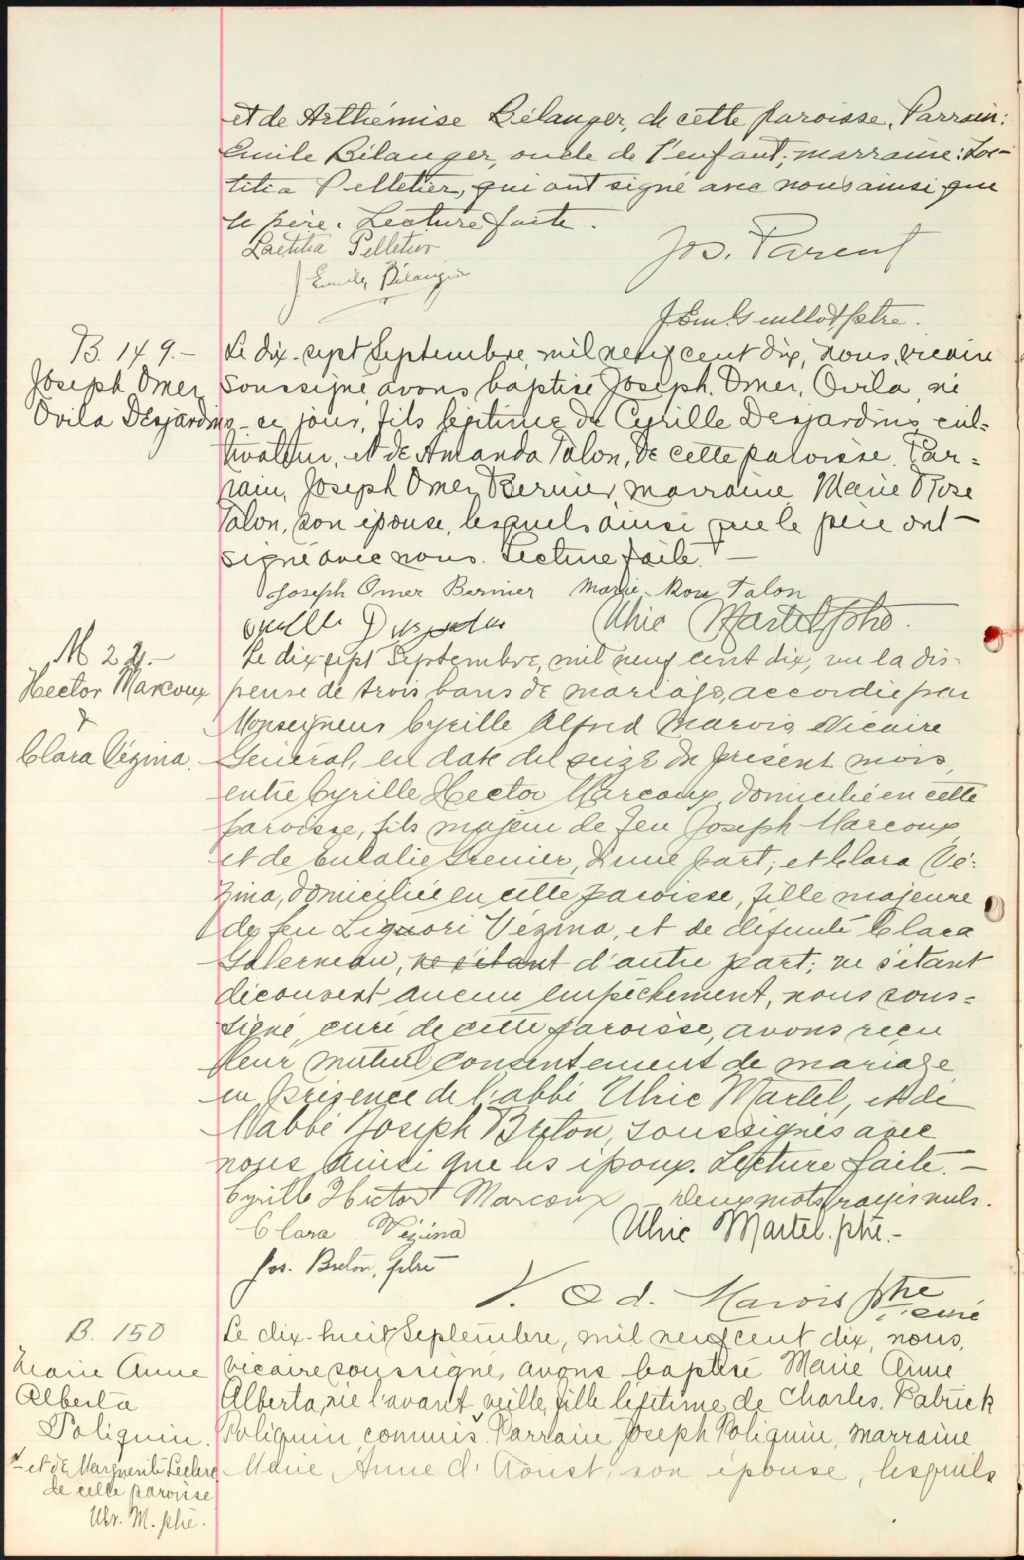 et de Arthémise Bélanger, de cette paroisse. Parrain:
Emile Bélanger, oncle de l'enfant; marraine: Loe-
titia Pelletier, qui ont signé avec nous ainsi que
le père. Lecture faite.
Laetitia Pelletier
Jos. Parent
Emile Bélanger
ptre.
B. 149.-
Joseph Omer
Ovila Desjardins
Le dix-sept Septembre, mil neuf cent dix, nous, vicaire
soussigné avons baptisé Joseph, Omer, Ovila, né
ce jour, fils légitime de Cyrille Desjardins, cul-
tivateur, et de Amanda Talon, de cette paroisse. Par-
rain, Joseph Omer Bernier, marraine, Marie Rose
Talon, son épouse, lesquels ainsi que le père ont
signé avec nous. Lecture faite. -
Joseph Omer Bernier Marie-Rose Talon
Ulric Martel ptre.
M 24.-
Hector Marcoux
&
Clara Vézina.
Le dix sept Septembre, mil neuf cent dix, vu la dis-
pense de trois bans de mariage, accordée par
Monseigneur Cyrille Alfred Marois, Vicaire
Général, en date du seize du présent mois,
entre Cyrille Hector Marcoux, domicilié en cette
paroisse, fils majeur de feu Joseph Marcoux
et de Eulalie Grenier, d'une part; et Clara Vé-
zina, domiciliée en cette paroisse, fille majeure
de feu Liguori Vézina, et de défunte Clara
Galerneau, ne s'étant d'autre part; ne s'étant
découvert aucun empêchement, nous sous-
signé, curé de cette paroisse, avons reçu
leur mutuel consentement de mariage
en présence de l'abbé Ulric Martel, et de
l'abbé Joseph Breton, soussignés avec
nous ainsi que les époux. Lecture faite. -
Cyrille Hector Marcoux Deux mots rayés nuls.
Clara Vézina
Ulric Martel. ptre.-
Jos. Breton, ptre
V. Od. Marois ptre
curé
B. 150
Marie Anne
Alberta
Poliquin.
et de Marguerite Leclerc
de cette paroisse
Ulr. M. ptre.
Le dix-huit Septembre, mil neuf cent dix, nous,
vicaire soussigné, avons baptisé Marie Anne
Alberta, née l'avant veille, fille légitime de Charles, Patrick
Poliquin, commis. Parrain Joseph Poliquin, marraine
Marie, Anne d'Aoust, son épouse, lesquels